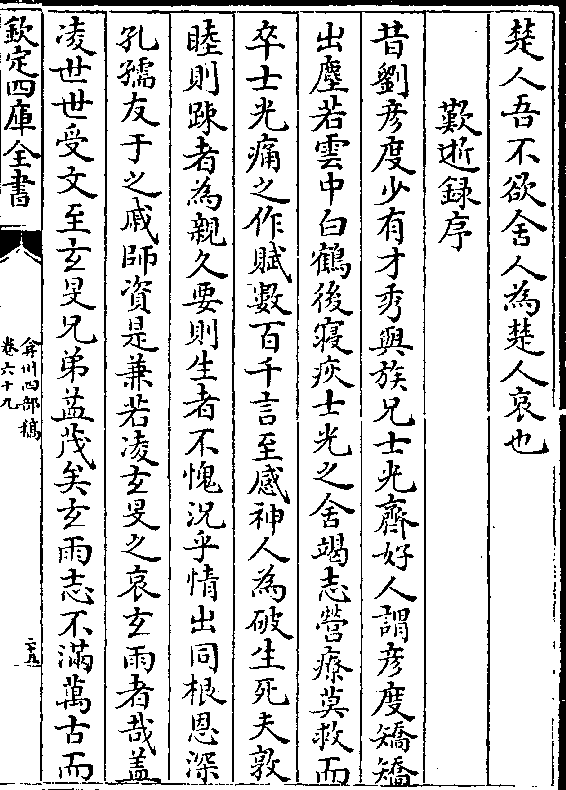 楚人吾不欲舍人為楚人哀也
歎逝録序
昔劉彦度少有才秀與族兄士光齊好人謂彦度矯矯
出塵若雲中白鶴後寝疾士光之舍竭志營療莫救而
卒士光痛之作賦數百千言至感神人為破生死夫敦
睦則踈者為親久要則生者不愧况乎情出同根恩深
孔孺友于之戚師資是兼若凌玄旻之哀玄雨者哉盖
凌世世受文至玄旻兄弟益茂矣玄雨志不滿萬古而
欽定四庫全書
弇州四部稿
卷六十九
二五